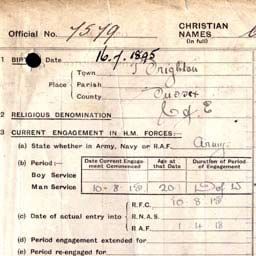 Official No. 7579
CHRISTIAN
NAMES
(in full)
1 BIRTH 16.7.1895
Town Brighton
Place Parish
County Sussex
2 RELIGIOUS DENOMINATION C of E
3 CURRENT ENGAGEMENT IN H.M. FORCES:
(a) State whether in Army, Navy or R.A.F. Army
(b) Period:
Date Current Engagement Commenced
Age at that Date
Duration of Period of Engagement
Boy Service
Man Service 10-8-18 20 of W
(c) Date of actual entry into
R.F.C. 10 8 18
R.N.A.S.
R.A.F. 1 4 18
(d) Period engagement extended for
(e) Period re-engaged for